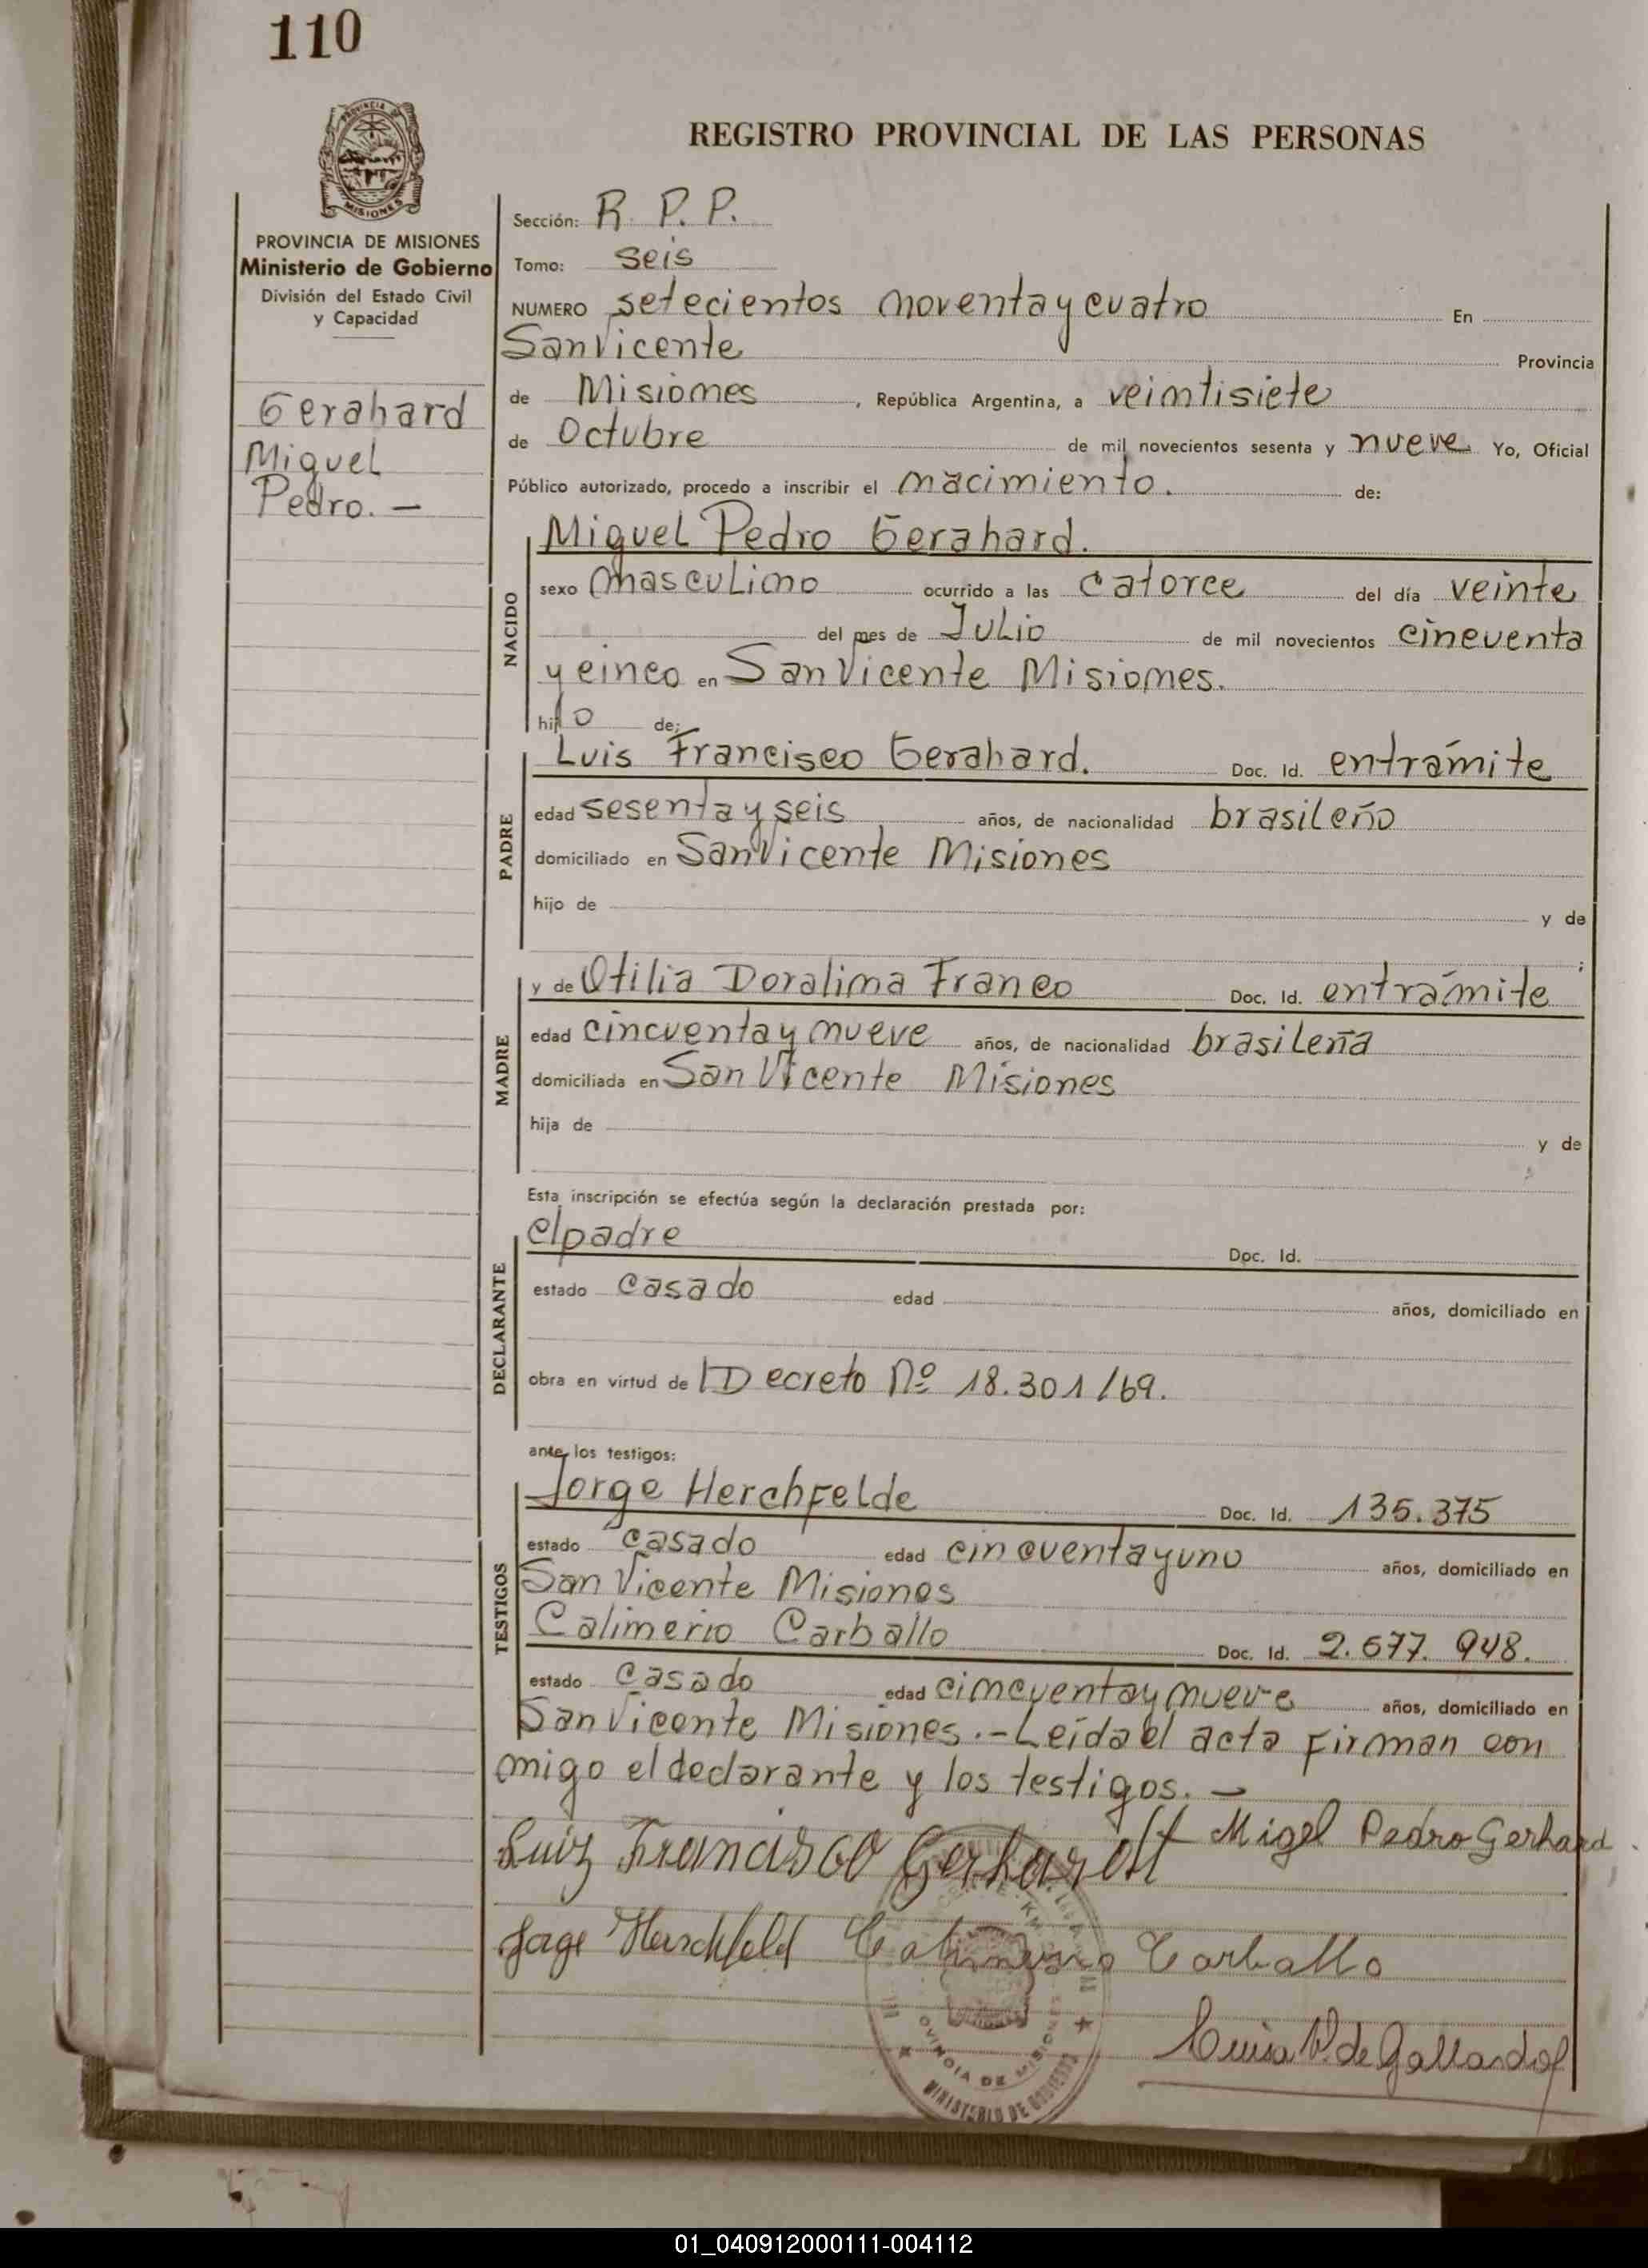 110
MISIONES
PROVINCIA DE MISIONES
Ministerio de Gobierno
División del Estado Civil
y Capacidad
Gerahard
Miguel
Pedro. —
REGISTRO PROVINCIAL DE LAS PERSONAS
Sección: R. P. P.
Tomo: seis
NUMERO setecientos noventa y cuatro En
San Vicente Provincia
de Misiones, República Argentina, a veintisiete
de Octubre de mil novecientos sesenta y nueve Yo, Oficial
Público autorizado, procedo a inscribir el nacimiento. de:
NACIDO
Miguel Pedro Gerahard.
sexo masculino ocurrido a las catorce del día veinte
del mes de Julio de mil novecientos cincuenta
y cinco en San Vicente Misiones.
hijo de:
PADRE
Luis Francisco Gerahard. Doc. Id. en trámite
edad sesenta y seis años, de nacionalidad brasileño
domiciliado en San Vicente Misiones
hijo de y de
;
MADRE
y de Otilia Doralina Franco Doc. Id. en trámite
edad cincuenta y nueve años, de nacionalidad brasileña
domiciliada en San Vicente Misiones
hija de y de
Esta inscripción se efectúa según la declaración prestada por:
DECLARANTE
el padre Doc. Id.
estado casado edad años, domiciliado en
obra en virtud de Decreto Nº 18.301/69.
ante los testigos:
TESTIGOS
Jorge Herchfelde Doc. Id. 135.375
estado casado edad cincuenta y uno años, domiciliado en
San Vicente Misiones
Calimerio Carballo Doc. Id. 2.677.948.
estado casado edad cincuenta y nueve años, domiciliado en
San Vicente Misiones.- Leída el acta firman con
migo el declarante y los testigos. —
Luiz Francisco Gerhardt Migel Pedro Gerhard
Jorge Herschfeld Calimerio Carballo
Luisa V. de Gallardo
PROVINCIA DE MISIONES
MINISTERIO DE GOBIERNO
01_040912000111-004112